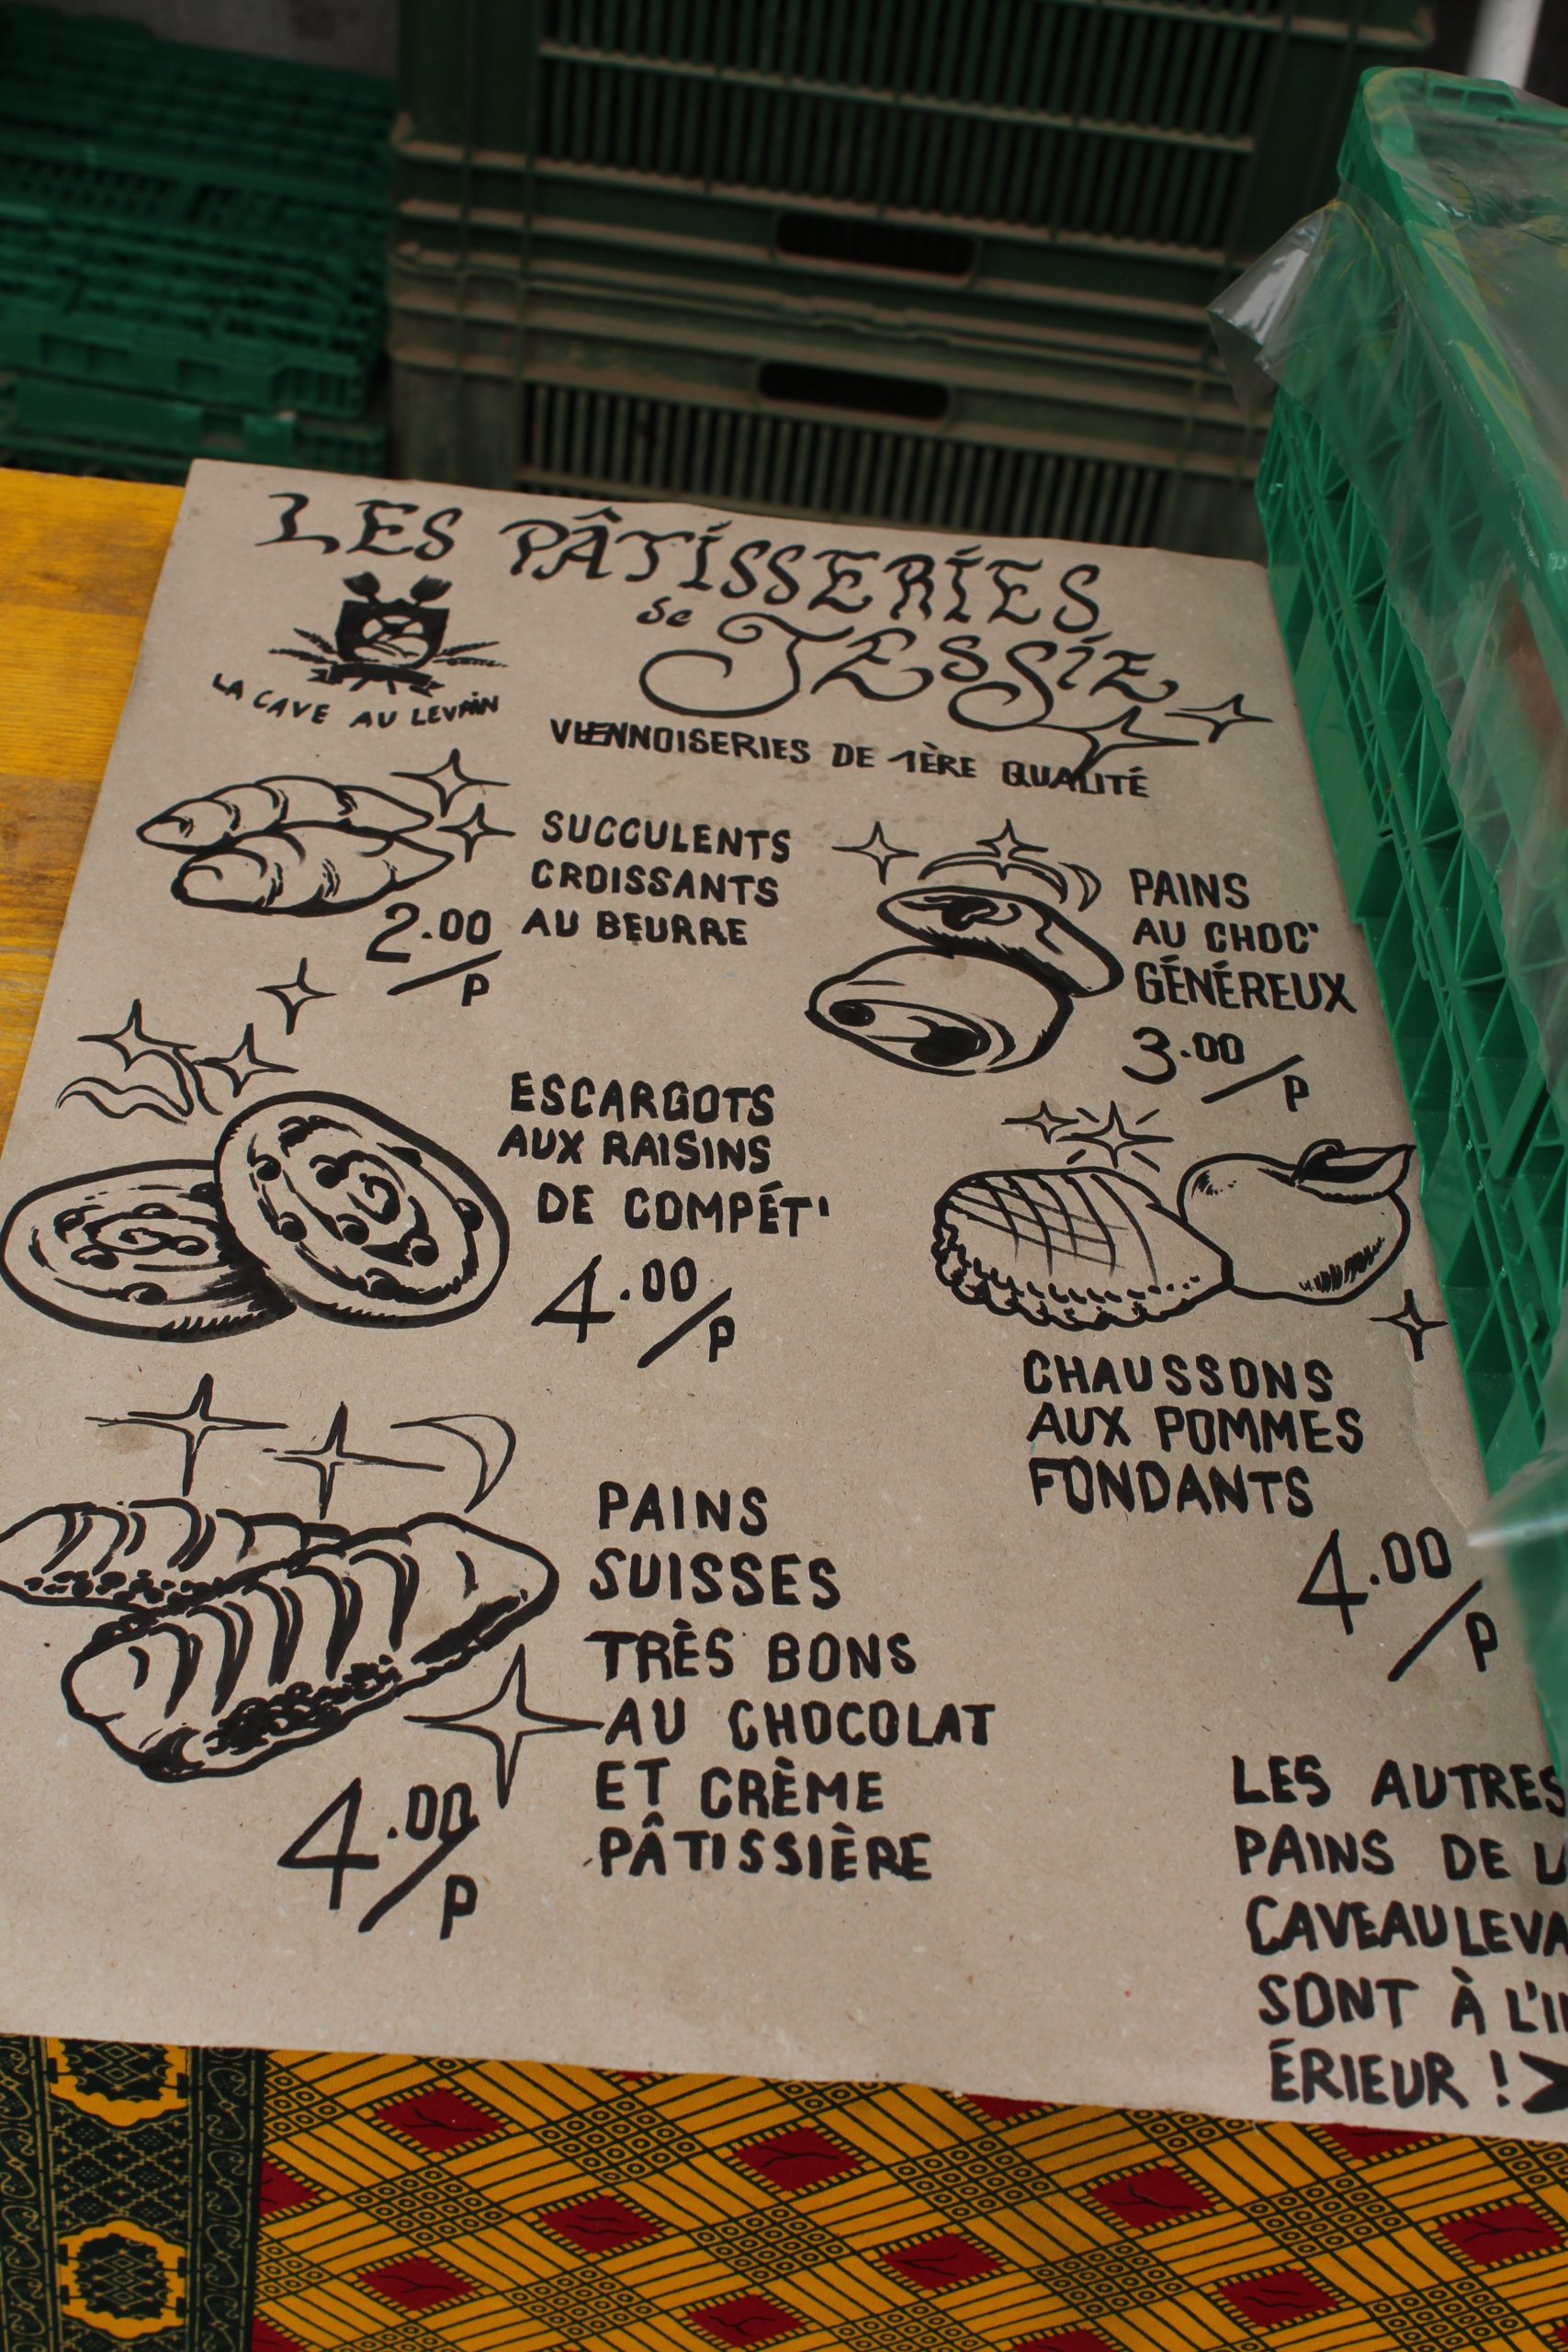 LES PÂTISSERIES
de JESSIE
LA CAVE AU LEVAIN
VIENNOISERIES DE 1ÈRE QUALITÉ
SUCCULENTS
CROISSANTS
AU BEURRE
2.00
/P
PAINS
AU CHOC'
GÉNÉREUX
3.00
/P
ESCARGOTS
AUX RAISINS
DE COMPÉT'
4.00
/P
CHAUSSONS
AUX POMMES
FONDANTS
4.00
/P
PAINS
SUISSES
TRÈS BONS
AU CHOCOLAT
ET CRÈME
PÂTISSIÈRE
4.00
/P
LES AUTRES
PAINS DE
CAVEAULEVA
SONT À L'I
ÉRIEUR !